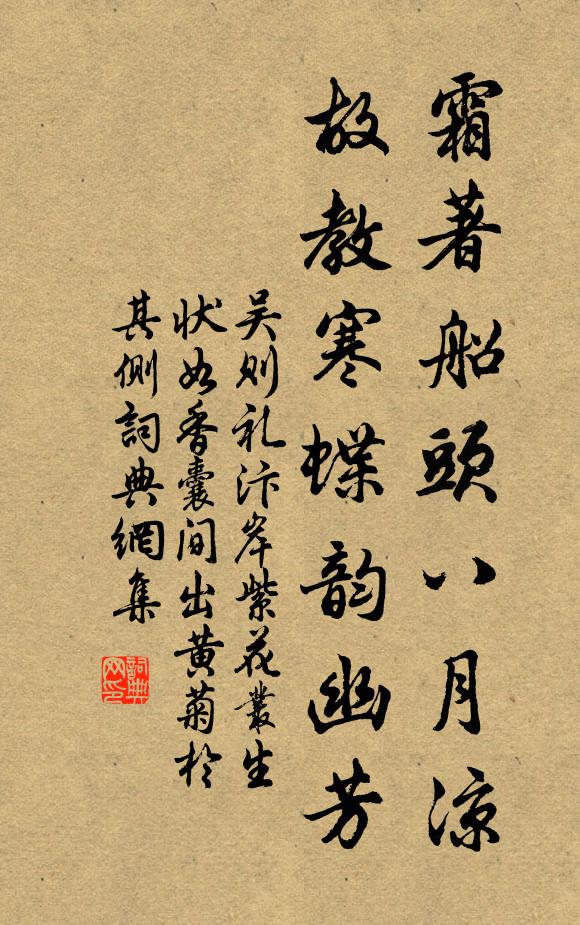 霜著船頭八月涼
故教寒蝶韵幽芳
吴则礼汴岸紫花叢生
状如香囊间出黄菊於
其侧詞典網集
詞典网印